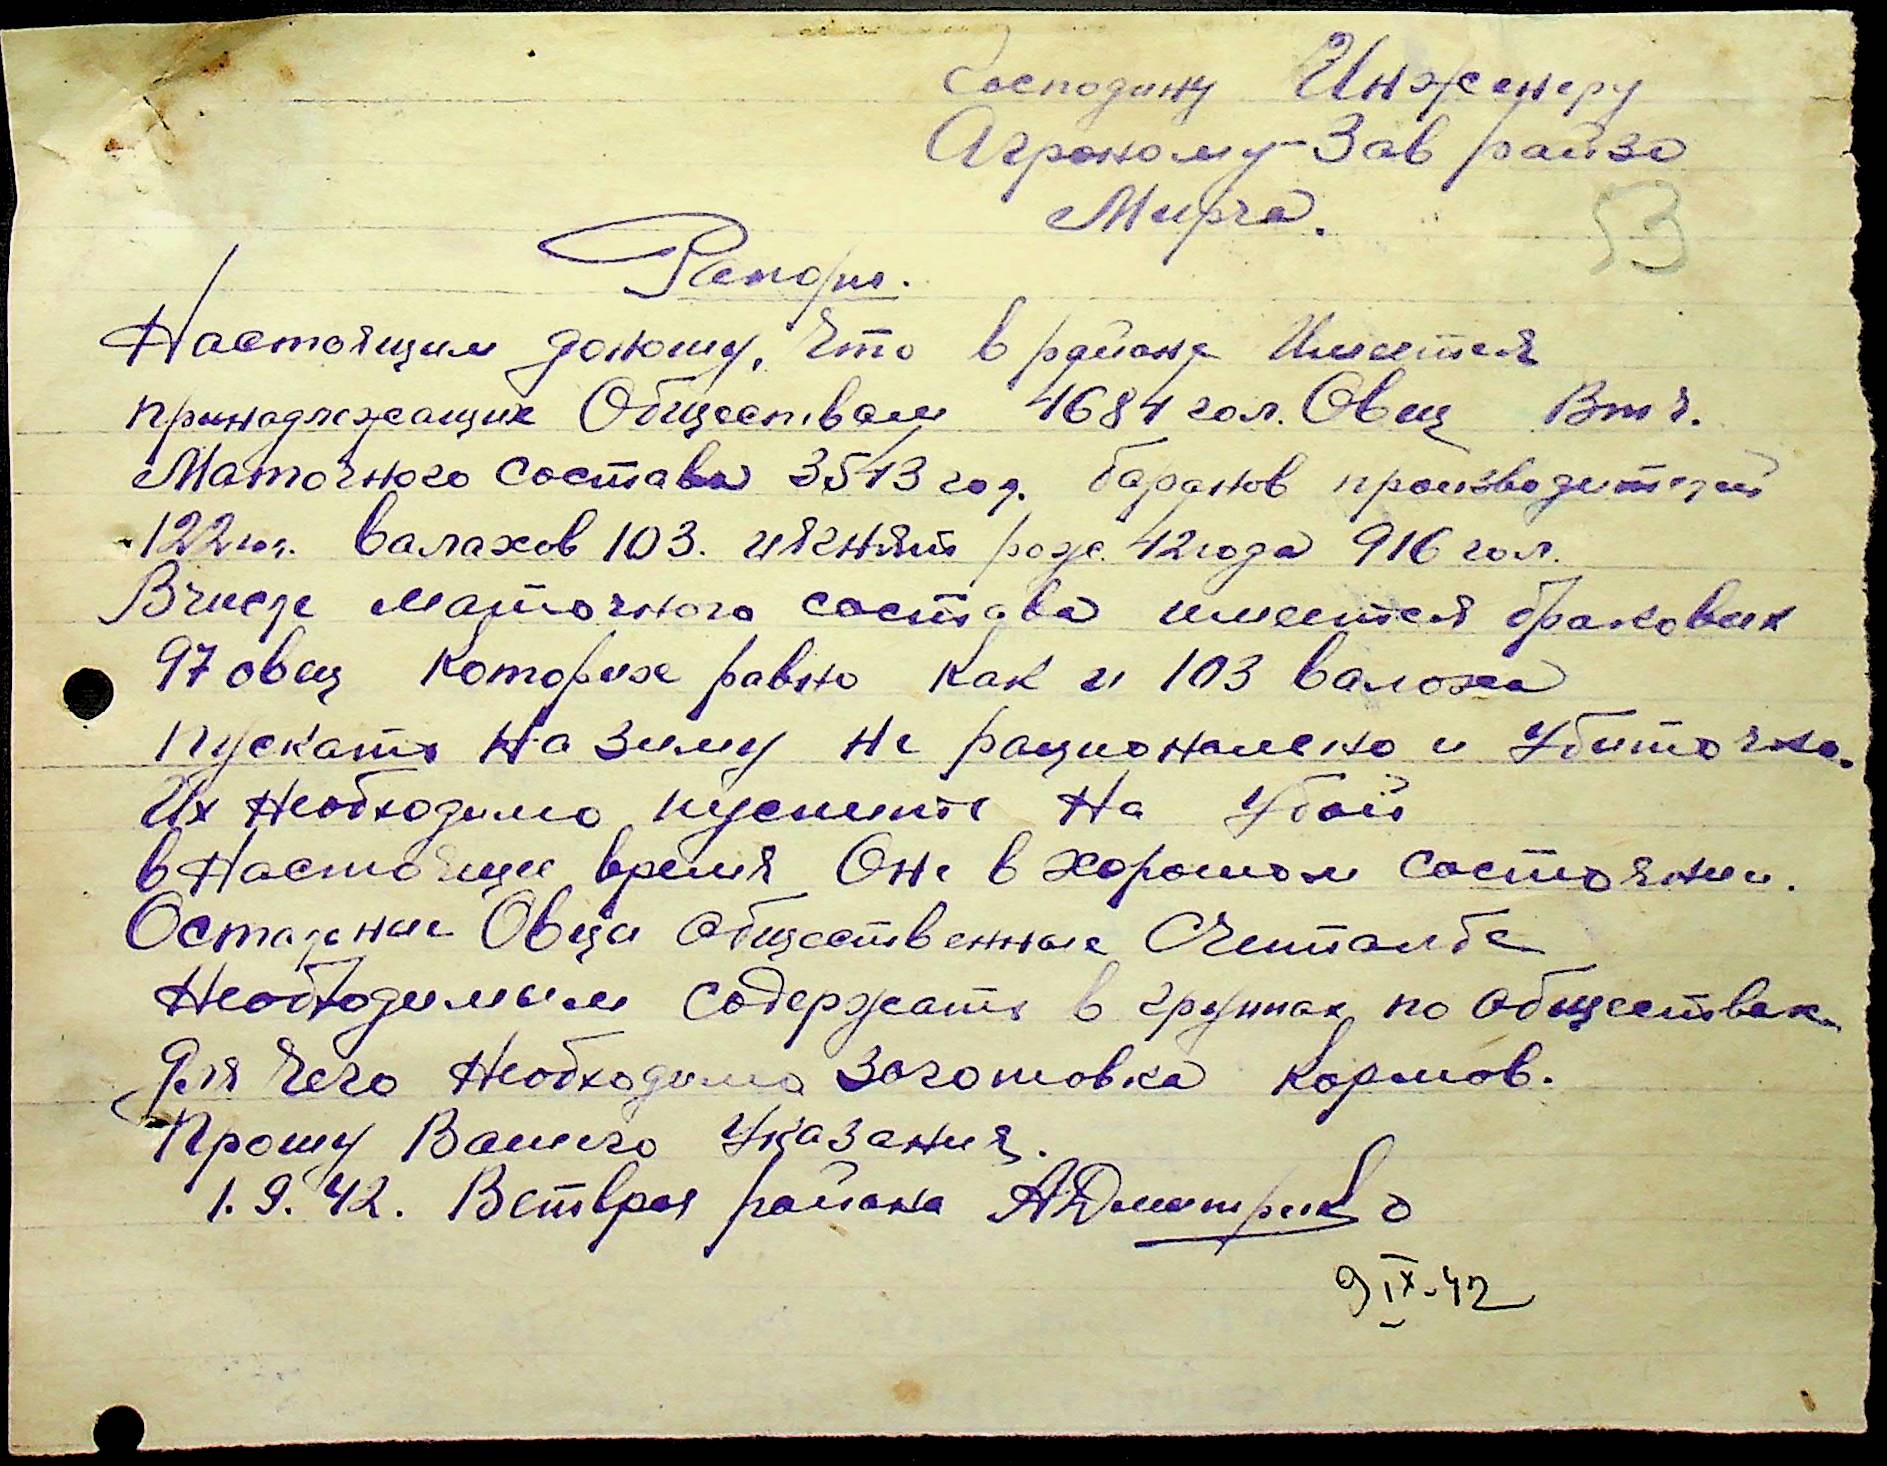 Господину Инженеру
Агроному-Зав райзо
Мирча.
53
Рапорт.
Настоящим доношу, что в районе Имеется
принадлежащих Обществам 4684 гол. Овец Вт ч.
Маточного состава 3543 гол. баранов производителей
122 гол. валахов 103. и ягнят рожд. 42 года 916 гол.
Вчисле маточного состава имеется браковых
97 овец которых равно как и 103 валаха
пускать на зиму не рационально и убиточно.
Их необходимо пустить на убой
в Настоящее время Они в хорошом состоянии.
Остальние Овци общественные Считалбе
Необходимым содержать в групах по обществах
Для чего Необходимо Заготовка Кормов.
Прошу Вашего Указания.
1.9.42. Ветврач района АДмитренко
9 IX-42